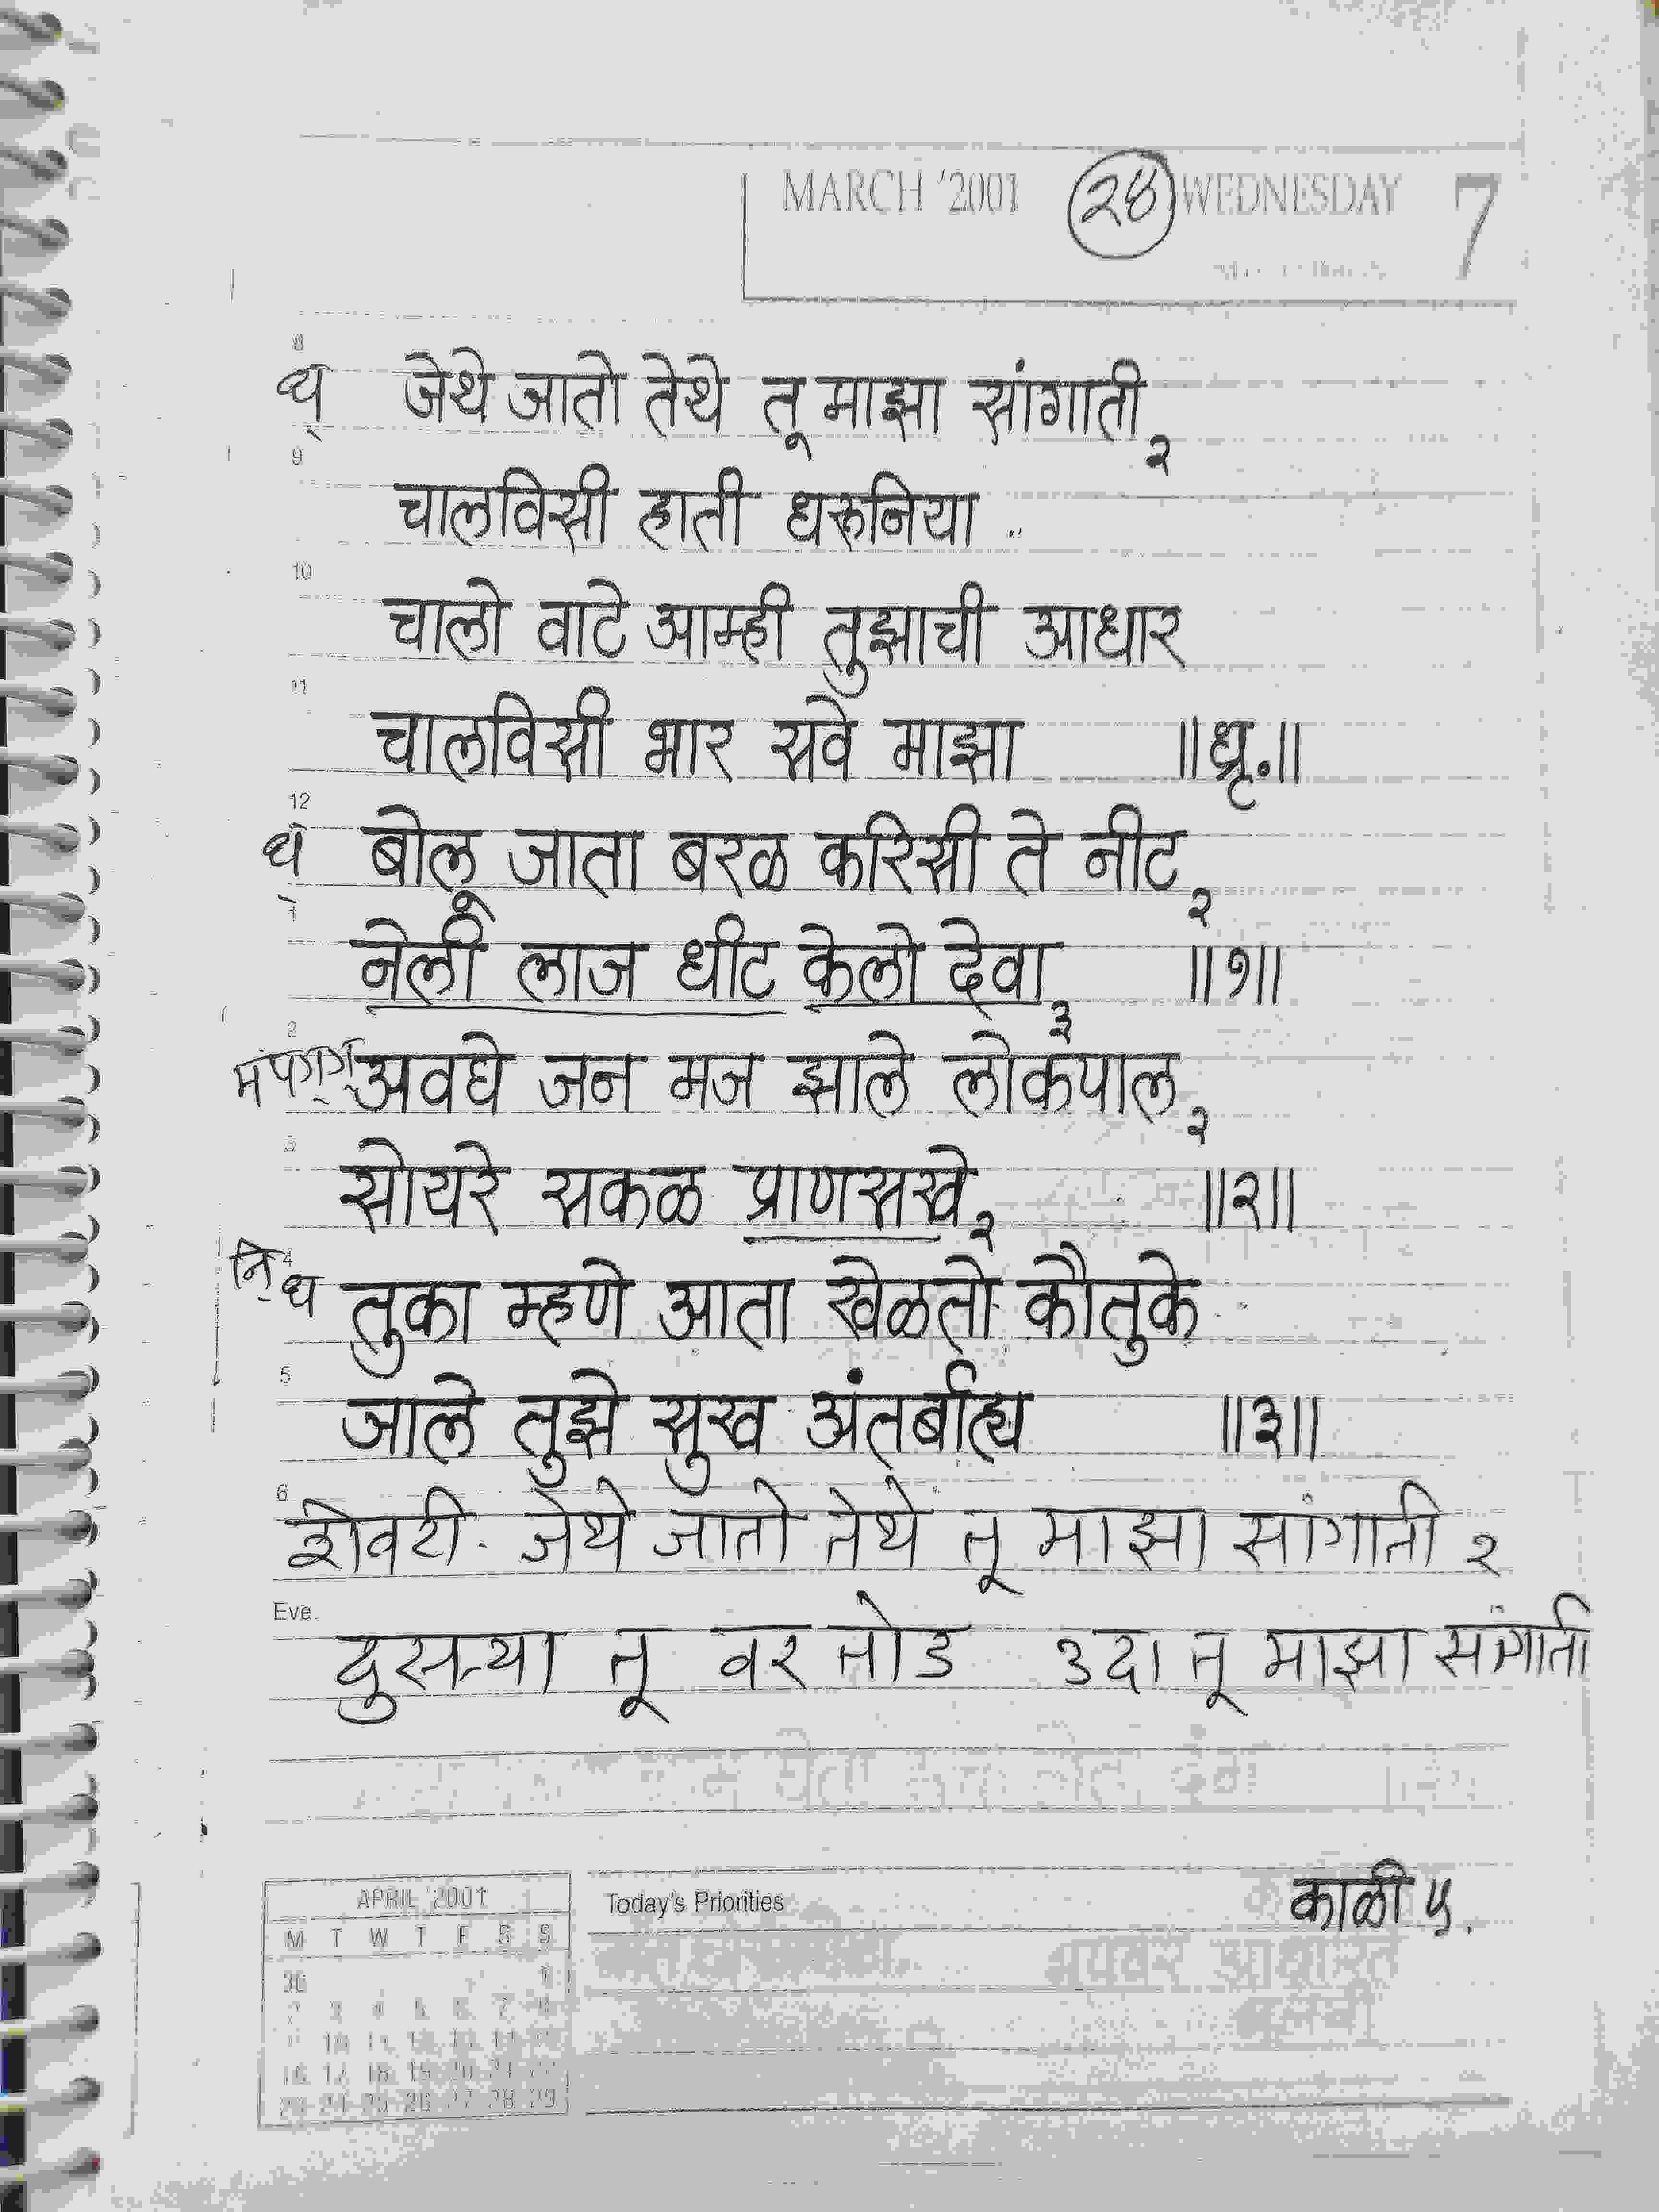 MARCH '2001 २४ WEDNESDAY 7
8
ध् जेथे जातो तेथे तू माझा सांगाती २
9
चालविसी हाती धरुनिया
10
चालो वाटे आम्ही तुझाची आधार
11
चालविसी भार सवे माझा ॥ध्रृ.॥
12
ध् बोलू जाता बरळ करिसी ते नीट २
1
नेली लाज धीट केलो देवा ३ ॥१॥
2
अवघे जन मज झाले लोकपाल २
3
सोयरे सकळ प्राणसखे २ ॥२॥
4
नि ध तुका म्हणे आता खेळतो कौतुके
5
जाले तुझे सुख अंतर्बाह्य ॥३॥
6
शेवटी. जेथे जातो तेथे तू माझा सांगाती २
Eve.
दुसऱ्या तू वर तोड ३दा तू माझा सांगाती
काळी ५.
APRIL 2001 Today's Priorities
M T W T F S S
30 1
2 3 4 5 6 7 8
9 10 11 12 13 14 15
16 17 18 19 20 21 22
23 24 25 26 27 28 29